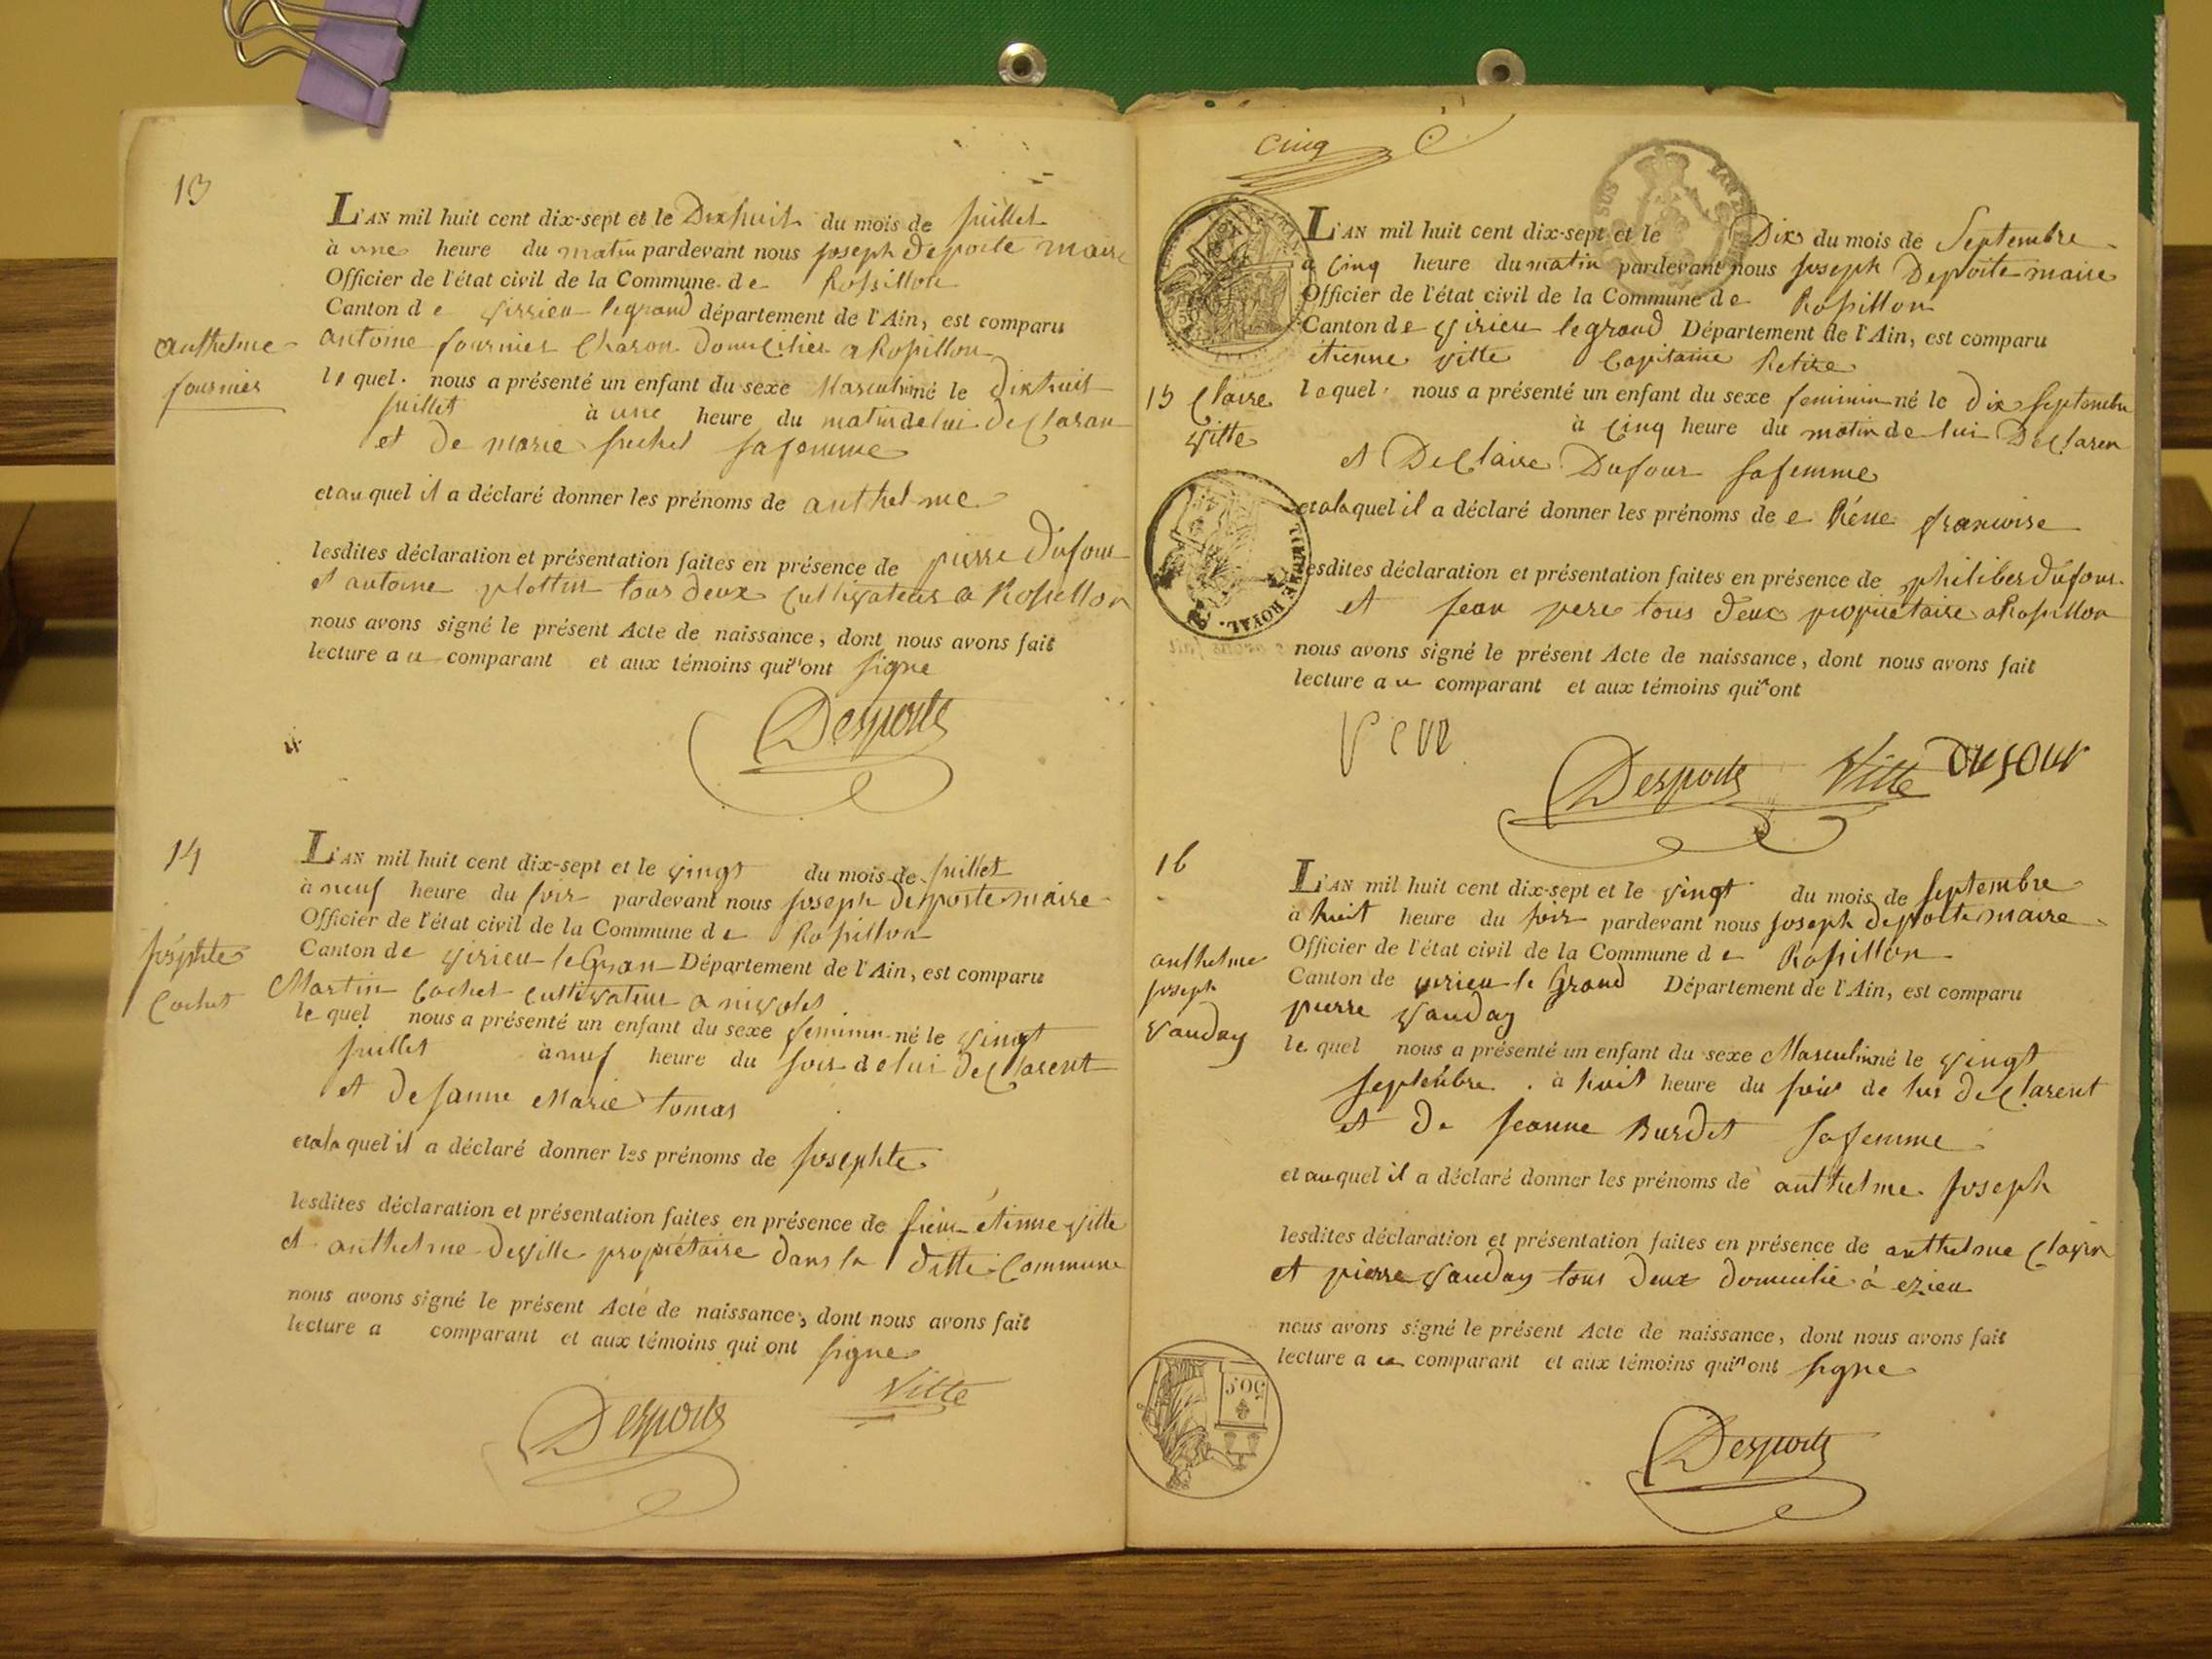 13
L'AN mil huit cent dix-sept et le Dixhuit du mois de Juillet
à une heure du matin pardevant nous Joseph Deporte maire
Officier de l'état civil de la Commune de Rossillon
Canton de Virrieu legrand département de l'Ain, est comparu
anthelme
fournier
antoine fournier Charon domicilier a Rossillon
lequel nous a présenté un enfant du sexe Masculin né le dixhuit
Juillet à une heure du matin de lui declaran
et de marie sa femme
et au quel il a déclaré donner les prénoms de anthelme
lesdites déclaration et présentation faites en présence de pierre Dufour
et antoine plottin tous deux cultivateurs a Rossillon
nous avons signé le présent Acte de naissance, dont nous avons fait
lecture au comparant et aux témoins qui n'ont signe
Desporte
14
L'AN mil huit cent dix-sept et le vingt du mois de Juillet
à neuf heure du soir pardevant nous Joseph deporte maire
Officier de l'état civil de la Commune de Rossillon
Josephte
Cochet
Canton de Virieu le Gran Département de l'Ain, est comparu
Martin Cochet cultivateur a
le quel nous a présenté un enfant du sexe feminin né le vingt
Juillet à neuf heure du soir de lui declarent
et de Janne Marie tomas
et a la quel il a déclaré donner les prénoms de Josephte
lesdites déclaration et présentation faites en présence de étienne Vitte
et anthelme deville propriétaire dans la ditte Commune
nous avons signé le présent Acte de naissance, dont nous avons fait
lecture a comparant et aux témoins qui ont signe
Vitte
Desporte
cinq
L'AN mil huit cent dix-sept et le Dix du mois de Septembre
à cinq heure du matin pardevant nous Joseph Deporte maire
Officier de l'état civil de la Commune de Rossillon
Canton de Virieu legrand Département de l'Ain, est comparu
étienne Vitte Capitaine Retire
15 Claire
Vitte
laquel nous a présenté un enfant du sexe feminin né le dix Septembre
à cinq heure du matin de lui Declaren
et De Claire Dufour sa femme
et a la quel il a déclaré donner les prénoms de francoise
lesdites déclaration et présentation faites en présence de philiber dufour
et Jean pere tous deux propriétaire a Rossillon
TIMBRE ROYAL.
nous avons signé le présent Acte de naissance, dont nous avons fait
lecture au comparant et aux témoins qui ont
Desporte Vitte Dufour
16
L'AN mil huit cent dix-sept et le vingt du mois de Septembre
à huit heure du soir pardevant nous Joseph deporte maire
Officier de l'état civil de la Commune de Rossillon
anthelme
joseph
Vauday
Canton de virieu le Grand Département de l'Ain, est comparu
pierre Vauday
le quel nous a présenté un enfant du sexe Masculin né le vingt
Septembre à huit heure du soir de lui declarent
et de Jeanne Burdet sa femme
et auquel il a déclaré donner les prénoms de anthelme Joseph
lesdites déclaration et présentation faites en présence de anthelme
et pierre Vauday tous deux domicilie à ezieu
nous avons signé le présent Acte de naissance, dont nous avons fait
lecture au comparant et aux témoins qui n'ont signe
50 C
Desporte